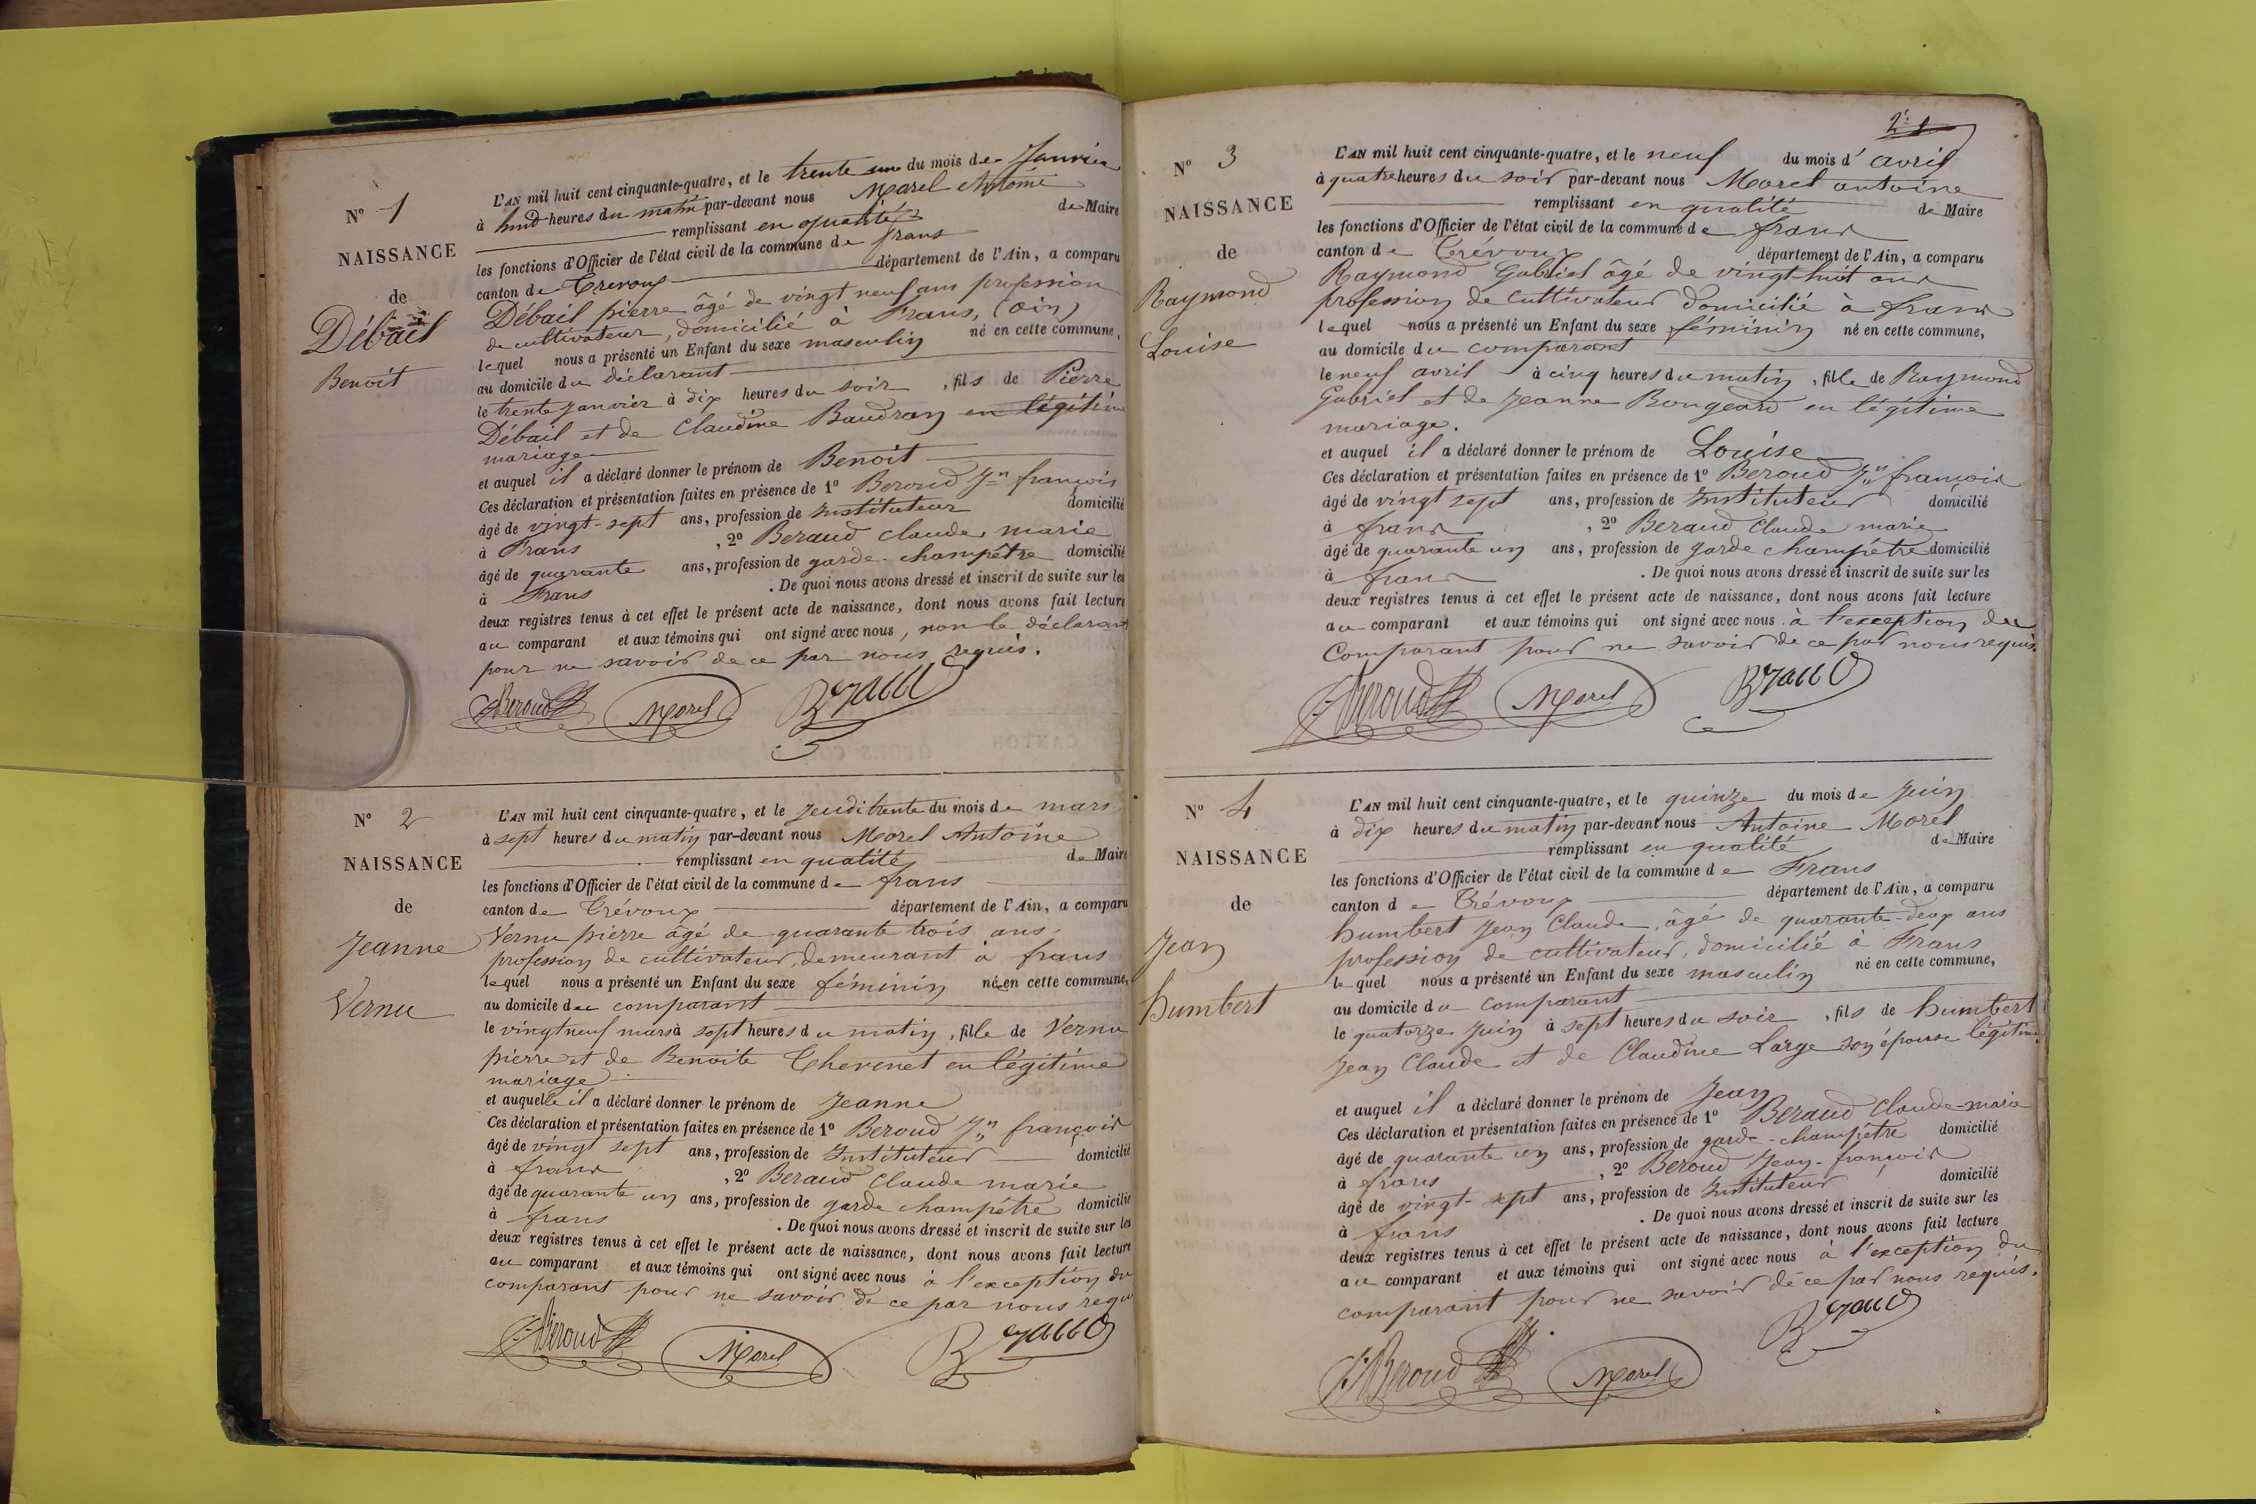 N° 1
NAISSANCE
de
Débail
Benoit
L'AN mil huit cent cinquante-quatre, et le trente un du mois de Janvier
à huit heures du matin par-devant nous Morel Antoine
remplissant en qualité de Maire
les fonctions d'Officier de l'état civil de la commune de frans
canton de Trevoux département de l'Ain, a comparu
Débail pierre âgé de vingt neuf ans profession
de cultivateur, domicilié à Frans, (ain)
lequel nous a présenté un Enfant du sexe masculin né en cette commune,
au domicile du déclarant
le trente Janvier à dix heures du soir, fils de Pierre
Débail et de Claudine Baudran en légitime
mariage
et auquel il a déclaré donner le prénom de Benoit
Ces déclaration et présentation faites en présence de 1° Beroud Jn françois
âgé de vingt-sept ans, profession de Instituteur domicilié
à Frans, 2° Beraud Claude marie
âgé de quarante ans, profession de garde-champêtre domicilié
à Frans. De quoi nous avons dressé et inscrit de suite sur les
deux registres tenus à cet effet le présent acte de naissance, dont nous avons fait lecture
au comparant et aux témoins qui ont signé avec nous, non le déclarant
pour ne savoir de ce par nous requis.
Beroud Morel Beraud
N° 2
NAISSANCE
de
Jeanne
Vernu
L'AN mil huit cent cinquante-quatre, et le Jeudi trente du mois de mars
à sept heures du matin par-devant nous Morel Antoine
remplissant en qualité de Maire
les fonctions d'Officier de l'état civil de la commune de frans
canton de Trévoux département de l'Ain, a comparu
Vernu pierre âgé de quarante trois ans,
profession de cultivateur, demeurant à frans
lequel nous a présenté un Enfant du sexe féminin née en cette commune,
au domicile du comparant
le vingt neuf mars à sept heures du matin, fille de Vernu
pierre et de Benoite Thevenet en légitime
mariage
et auquelle il a déclaré donner le prénom de Jeanne
Ces déclaration et présentation faites en présence de 1° Beroud Jn françois
âgé de vingt sept ans, profession de Instituteur domicilié
à frans, 2° Beraud Claude marie
âgé de quarante un ans, profession de garde champétre domicilié
à frans. De quoi nous avons dressé et inscrit de suite sur les
deux registres tenus à cet effet le présent acte de naissance, dont nous avons fait lecture
au comparant et aux témoins qui ont signé avec nous à l'exception du
comparant pour ne savoir de ce par nous requis
Beroud Morel Beraud
N° 3
NAISSANCE
de
Raymond
Louise
L'AN mil huit cent cinquante-quatre, et le neuf du mois d'avril
à quatre heures du soir par-devant nous Morel antoine
remplissant en qualité de Maire
les fonctions d'Officier de l'état civil de la commune de frans
canton de Trévoux département de l'Ain, a comparu
Raymond Gabriel âgé de vingt-huit ans
profession de cultivateur domicilié à frans
lequel nous a présenté un Enfant du sexe féminin né en cette commune,
au domicile du comparant
le neuf avril à cinq heures du matin, fille de Raymond
Gabriel et de Jeanne Bongeard en légitime
mariage.
et auquel il a déclaré donner le prénom de Louise
Ces déclaration et présentation faites en présence de 1° Beroud Jn françois
âgé de vingt sept ans, profession de Instituteur domicilié
à frans, 2° Beraud Claude marie
âgé de quarante un ans, profession de garde champétre domicilié
à frans. De quoi nous avons dressé et inscrit de suite sur les
deux registres tenus à cet effet le présent acte de naissance, dont nous avons fait lecture
au comparant et aux témoins qui ont signé avec nous à l'exception du
Comparant pour ne savoir de ce par nous requis.
Beroud Morel Beraud
N° 4
NAISSANCE
de
Jean
humbert
L'AN mil huit cent cinquante-quatre, et le quinze du mois de Juin
à dix heures du matin par-devant nous Antoine Morel
remplissant en qualité de Maire
les fonctions d'Officier de l'état civil de la commune de Frans
canton de Trévoux département de l'Ain, a comparu
humbert Jean Claude, âgé de quarante-deux ans
profession de cultivateur, domicilié à Frans
lequel nous a présenté un Enfant du sexe masculin né en cette commune,
au domicile du comparant
le quatorze Juin à sept heures du soir, fils de humbert
Jean Claude et de Claudine Large son épouse légitime.
et auquel il a déclaré donner le prénom de Jean
Ces déclaration et présentation faites en présence de 1° Beraud Claude-marie
âgé de quarante un ans, profession de garde-champêtre domicilié
à frans, 2° Beroud Jean-françois
âgé de vingt-sept ans, profession de Instituteur domicilié
à frans. De quoi nous avons dressé et inscrit de suite sur les
deux registres tenus à cet effet le présent acte de naissance, dont nous avons fait lecture
au comparant et aux témoins qui ont signé avec nous à l'exception du
comparant pour ne savoir de ce par nous requis.
Beroud Morel Beraud